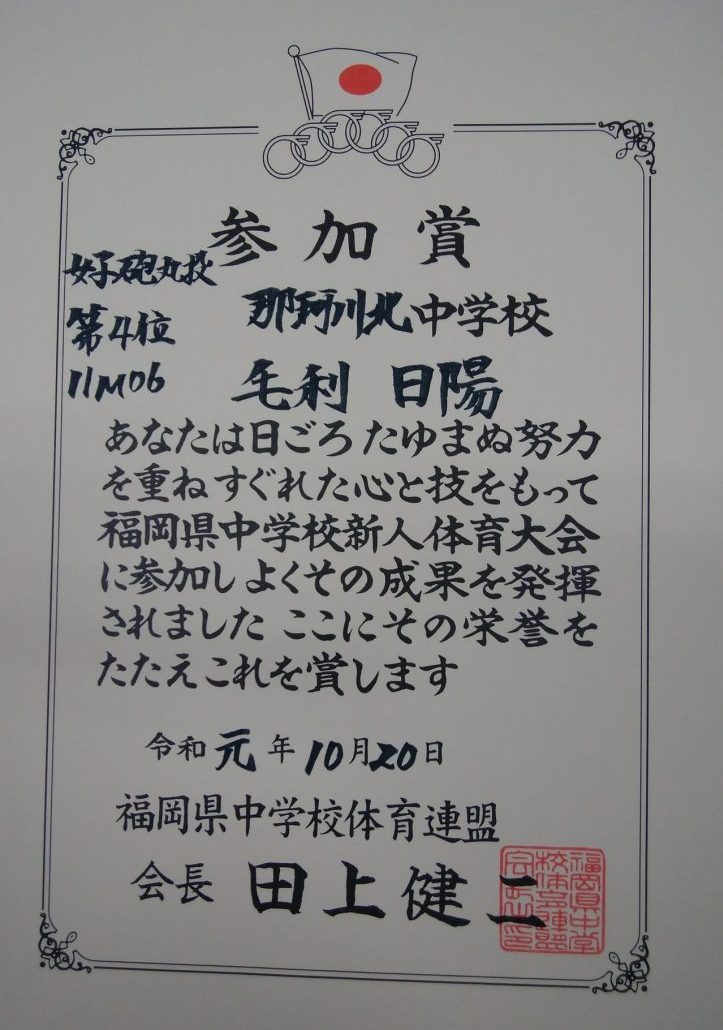 参加賞
女子砲丸投
第4位
11M06
那珂川北中学校
毛利 日陽
あなたは日ごろ たゆまぬ努力
を重ね すぐれた心と技をもって
福岡県中学校新人体育大会
に参加し よくその成果を発揮
されました ここにその栄誉を
たたえこれを賞します
令和元年10月20日
福岡県中学校体育連盟
会長 田上健二